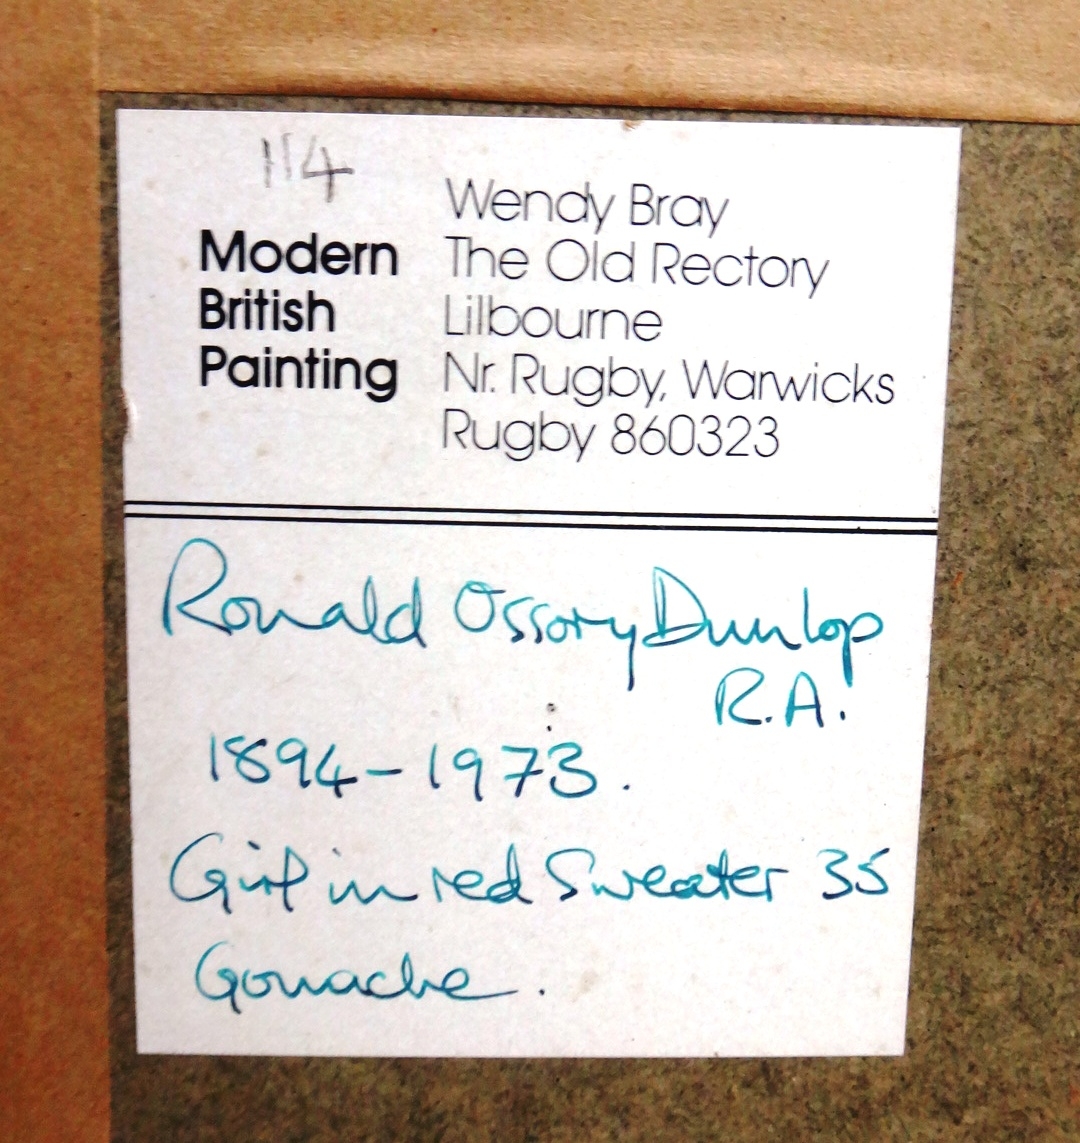 114
Wendy Bray
Modern The Old Rectory
British Lilbourne
Painting Nr. Rugby, Warwicks
Rugby 860323
Ronald Ossory Dunlop
R.A.
1894-1973.
Girl in red Sweater 35
Gouache.